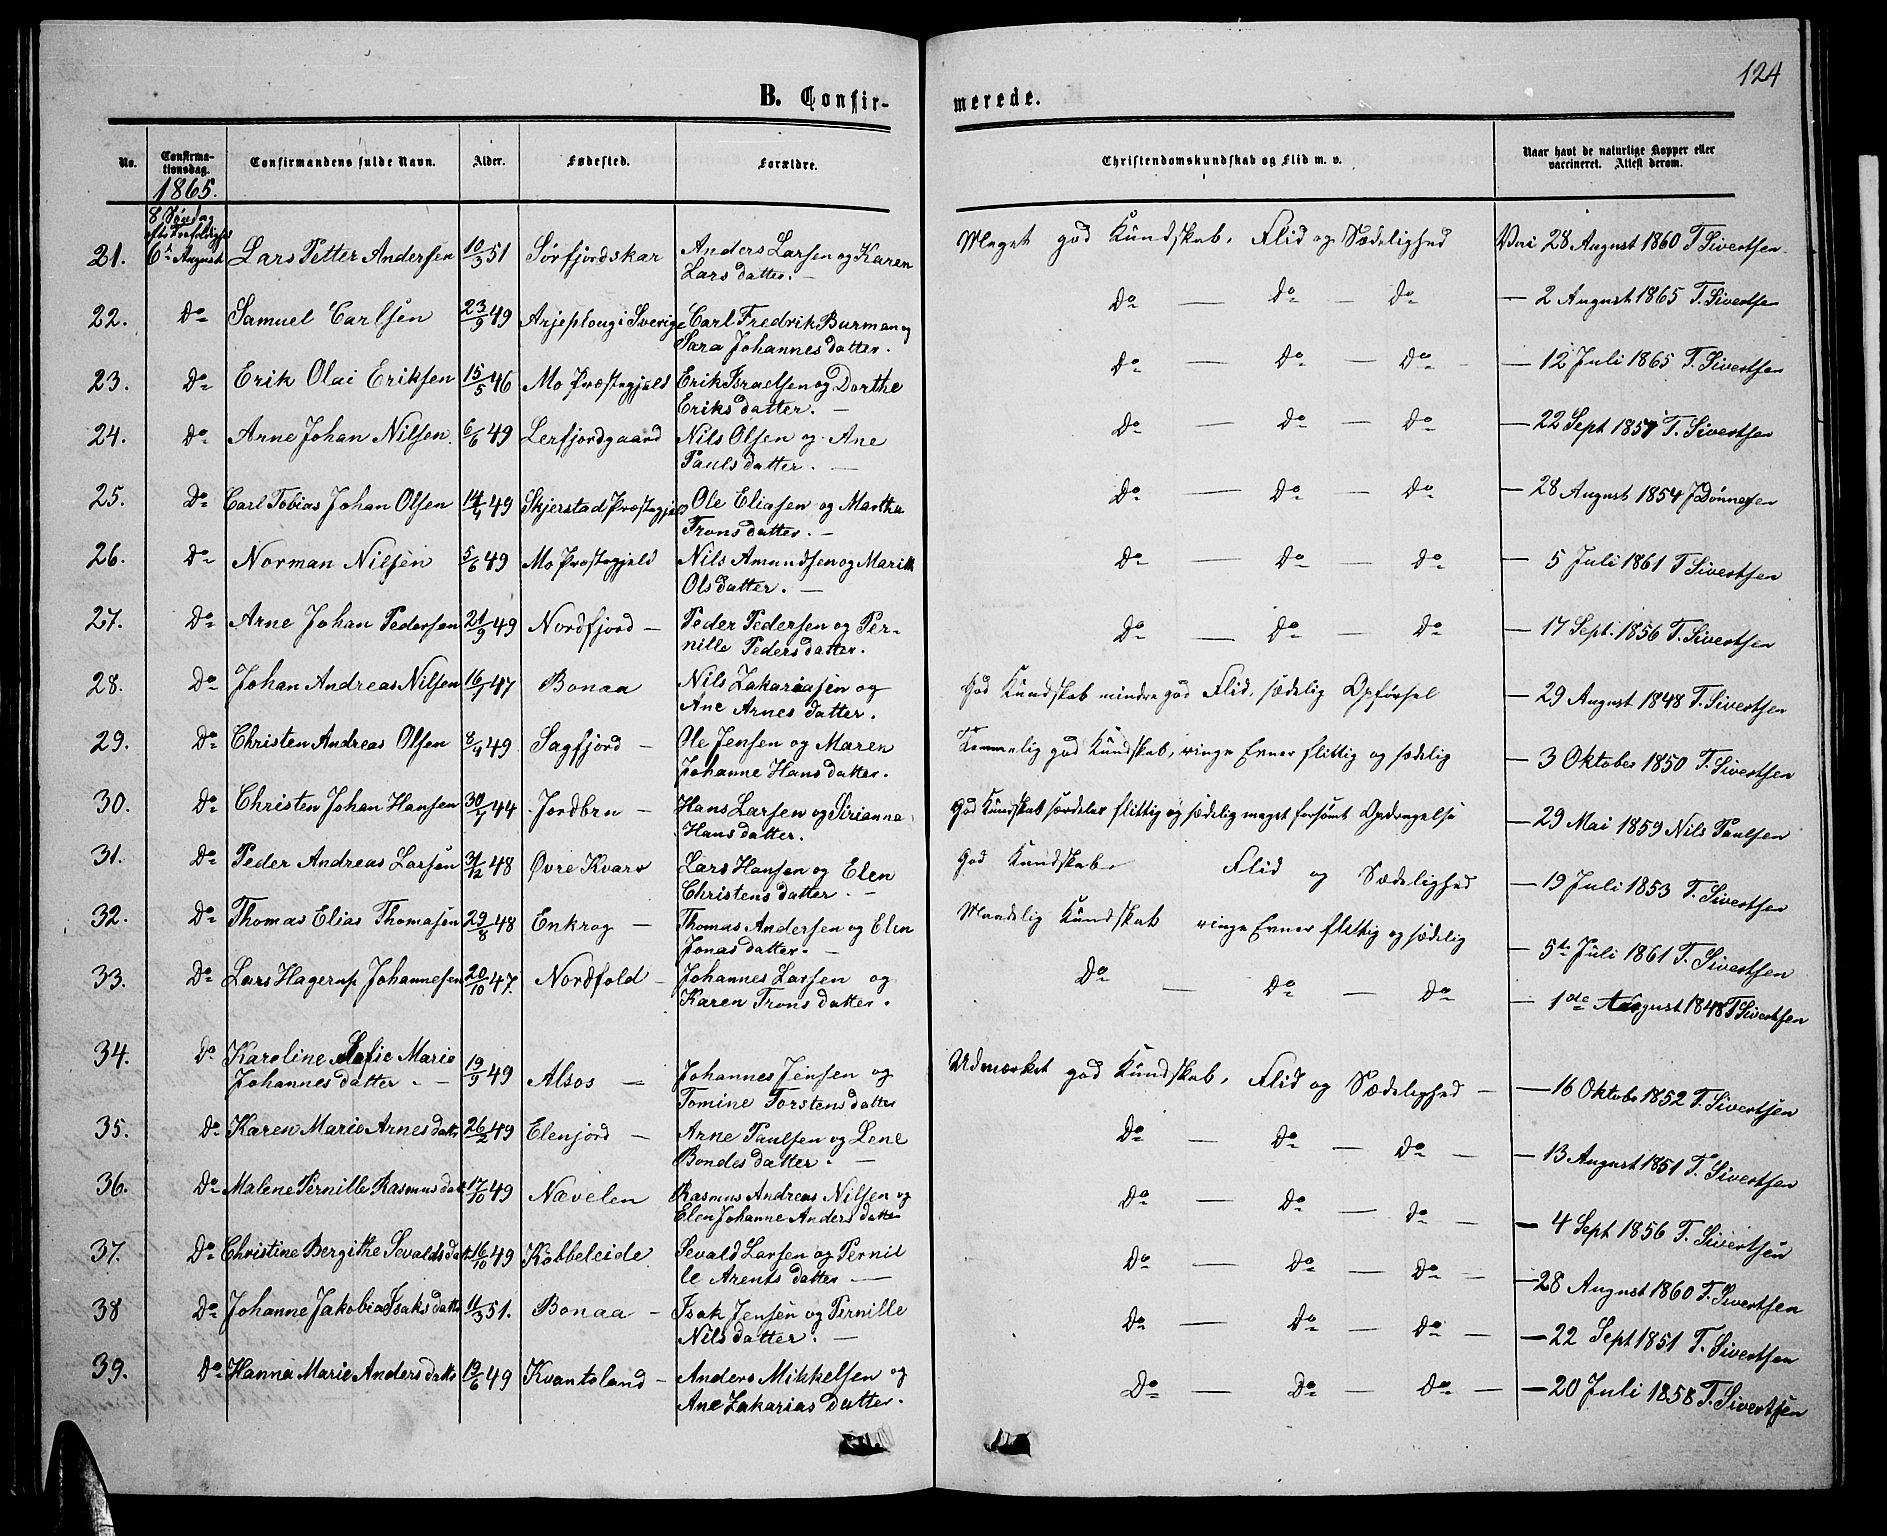 124
B. Confir-
merede.
No.
Confirma-
tionsdag.
Confirmandens fulde Navn.
Alder.
Fødested.
Forældre.
Christendomskundskab og Flid m. v.
Naar havt de naturlige Kopper eller
vaccineret. Attest derom.
1865.
8 Søndag
6te August
21. Lars Petter Andersen 10/3 51 Sørfjordskar Anders Larsen og Karen
Lars datter. — Meget god Kundskab, Flid og Sædelighed 28 August 1860 T. Sivertsen
22. Do Samuel Carlsen 23/9 49 Arjeploug i Sverige Carl Fredrik Burman og
Sara Johannes datter. Do — Do — Do — 2 August 1865 T. Sivertsen
23. Do Erik Olai Eriksen 15/5 46 Mo Præstegjeld Erik Israelsen og Dorthe
Eriks datter. — Do — Do — Do — 12 Juli 1865 T. Sivertsen
24. Do Arne Johan Nilsen. 6/6 49 Lerfjordgaard Nils Olsen og Ane
Pauls datter. — Do — Do — Do — 22 Sept 1857 T. Sivertsen
25. Do Carl Tobias Johan Olsen 49 Skjerstad Præstegjeld Ole Eliasen og Martha
Trons datter. — Do — Do — Do — 28 August 1854 J Dønnesen
26. Do Norman Nilsen 5/6 49 Mo Præstegjeld Nils Amundsen og Marith
Ols datter. — Do — Do — Do — 5 Juli 1861 T Sivertsen
27. Do Arne Johan Pedersen 21/9 49 Nordfjord — Peder Pedersen og Per-
nille Peders datter. Do — Do — Do — 17 Sept. 1856 T. Sivertsen
28. Do Johan Andreas Nilsen 16/1 47 Bonaa Nils Zakariasen og
Ane Arnes datter. God Kundskab mindre god Flid, sædelig Opførsel — 29 August 1848 T. Sivertsen
29. Do Christen Andreas Olsen 8/4 49 Sagfjord — Ole Jensen og Maren
Johanne Hans datter. Temmelig god Kundskab, ringe Evner flittig og sædelig — 3 Oktober 1850 T. Sivertsen
30. Do Christen Johan Hansen 44 Jordbru — Hans Larsen og Sirianna
Hans datter. God Kundskab særdeles flittig og sædelig meget forsømt Opdragelse — 29 Mai 1859 Nils Paulsen
31. Do Peder Andreas Larsen 31/12 48 Øvre Kvarv Lars Hansen og Elen
Christens datter. — God Kundskab Flid og Sædelighed — 19 Juli 1853 T. Sivertsen
32. Do Thomas Elias Thomasen 29/8 48 Enkrog — Thomas Andersen og Elen
Jonas datter. — Maadelig Kundskab ringe Evner flittig og sædelig — 5te Juli 1861 T. Sivertsen
33. Do Lars Hagerup Johannesen 20/10 47. Nordfold — Johannes Larsen og
Karen Trons datter. Do — Do — Do — 1ste August 1848 T Sivertsen
34. Do Karoline Sofie Marie
Johannes datter. — 19/9 49 Alsos — Johannes Jensen og
Tomine Torstens datter Udmærket god Kundskab, Flid og Sædelighed — — 16 Oktober 1852 T. Sivertsen
35. Do Karen Marie Arnes datter 26/2 49 Elenjord — Arne Paulsen og Lene
Bondes datter. — Do — Do — Do — — 13 August 1851 T. Sivertsen
36. Do Malene Pernille Rasmus datter 17/10 49 Nævelen Rasmus Andreas Nilsen og
Elen Johanne Anders datter Do — Do — Do — — 4 Sept 1856 T. Sivertsen
37. Do Christine Bergithe Sevalds datter 16/10 49 Kobbeleide. Sevald Larsen og Pernil
le Arents datter — Do — Do — Do — — 28 August 1860 T. Sivertsen
38 Do Johanne Jakobia Isaks datter 11/3 51. Bonaa — Isak Jensen og Pernille
Nils datter. — Do — Do — Do — — 22 Sept 1851 T. Sivertsen
39. Do Hanna Marie Anders datter 19/6 49 Kvantoland — Anders Mikkelsen og
Ane Zakarias datter. Do — Do — Do — — 20 Juli 1858 T. Sivertsen